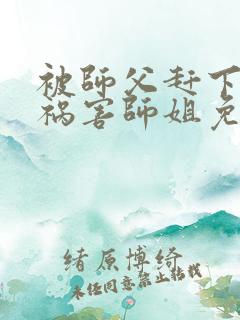 被師父赶下
祸害師姐免
緒原博綺
未经同意禁止转载